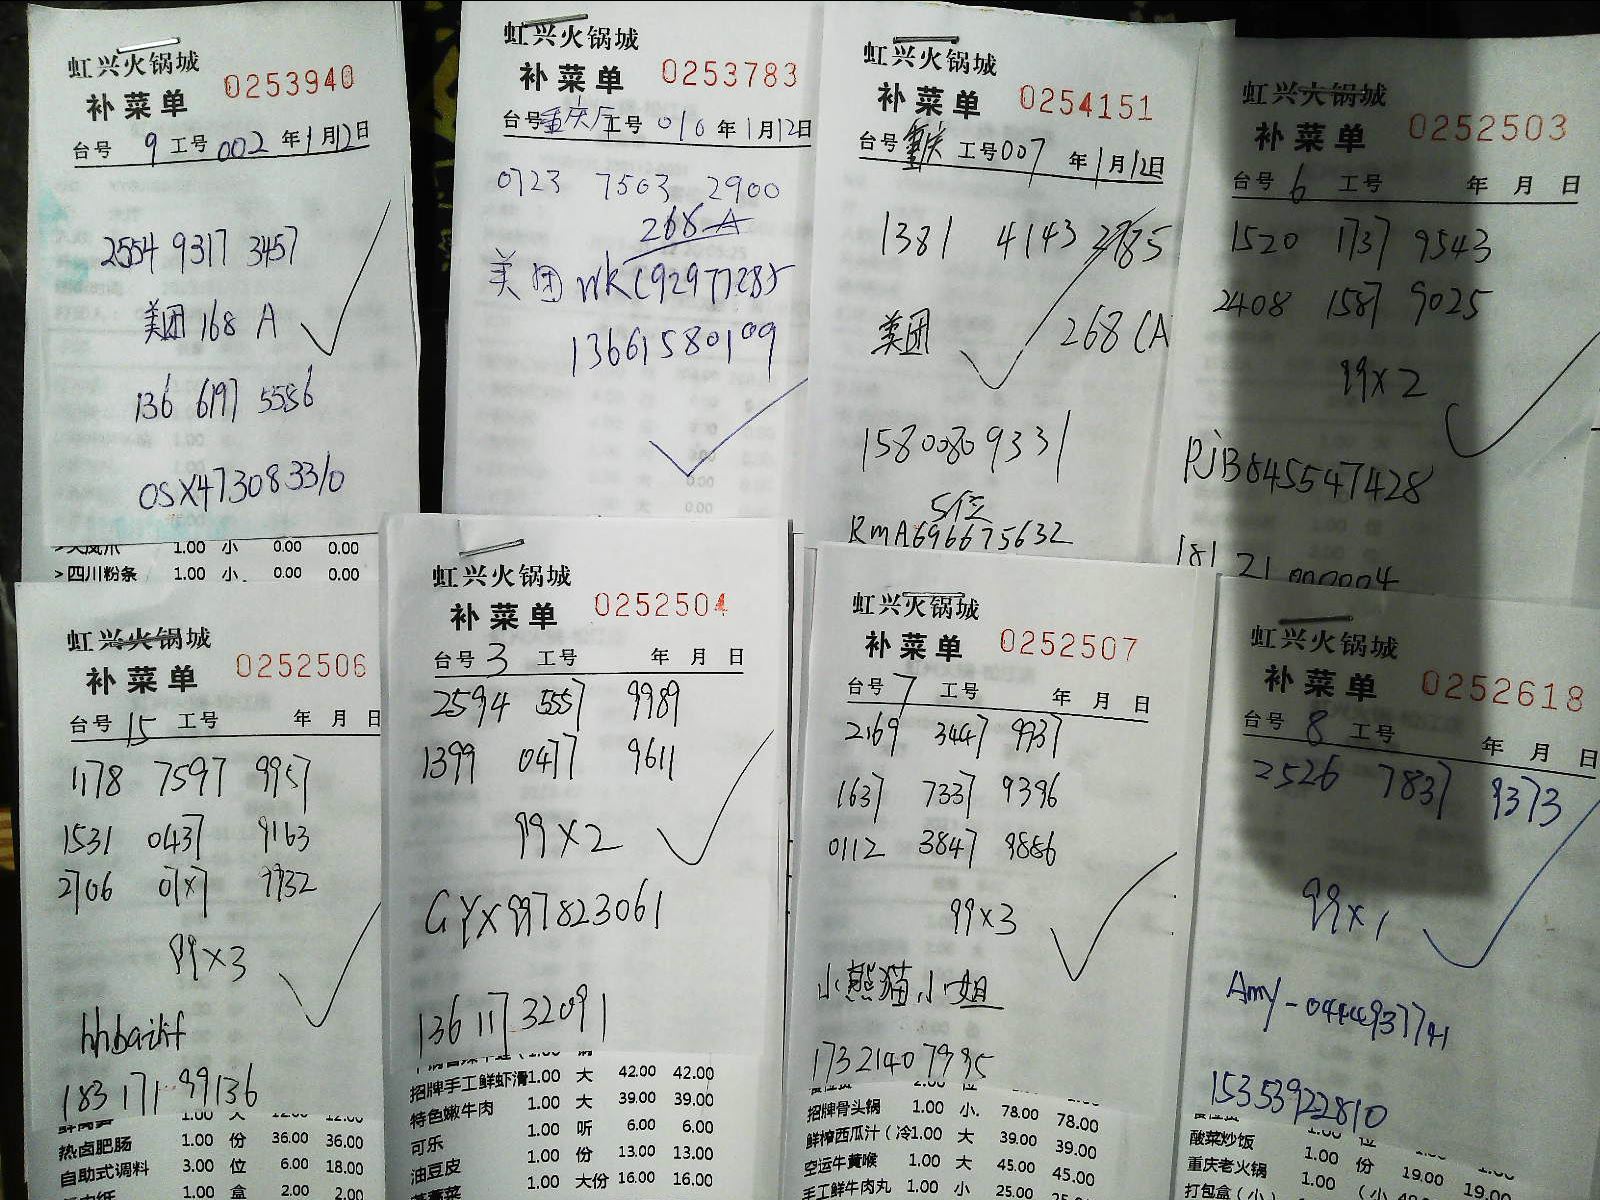 虹兴火锅城
补菜单 0253940
台号 9 工号 002 年 1月12日
2554 9317 3457
美团 168 A
136 6197 5556
OSX4730833/0
>四川粉条 1.00 小. 0.00 0.00
虹兴火锅城
补菜单 0253783
台号 重庆厅 工号 010 年 1月12日
0723 7503 2900
268 A
美团
13661580109
虹兴火锅城
补菜单 0254151
台号 重庆 工号 007 年 1月12日
1381 4143
美团 268 (A
15800809331
5位
RmA696675632
虹兴火锅城
补菜单 0252503
台号 6 工号 年 月 日
1520 1737 9543
2408 1587 9025
99×2
PJB8455547428
181 21
虹兴火锅城
补菜单 0252506
台号 15 工号 年 月 日
1178 7597 9957
1531 0437 9163
2706
99×3
183 171 99136
热卤肥肠 1.00 份 36.00 36.00
自助式调料 3.00 位 6.00 18.00
1.00 盒 2.00 2.00
虹兴火锅城
补菜单 0252504
台号 3 工号 年 月 日
2594 5557 9989
1399 0477 9611
99×2
GYX997823061
136 117 32091
招牌手工鲜虾滑 1.00 大 42.00 42.00
特色嫩牛肉 1.00 大 39.00 39.00
可乐 1.00 听 6.00 6.00
油豆皮 1.00 份 13.00 13.00
1.00 大份 16.00 16.00
虹兴火锅城
补菜单 0252507
台号 7 工号 年 月 日
2169 3447 9937
1637 7337 9396
0112 3847 9886
99×3
小熊猫小姐
173 2140 7995
招牌骨头锅 1.00 小. 78.00 78.00
鲜榨西瓜汁（冷 1.00 大 39.00 39.00
空运牛黄喉 1.00 大 45.00 45.00
手工鲜牛肉丸 1.00 小 25.00
虹兴火锅城
补菜单 0252618
台号 8 工号 年 月 日
2526 7837 9373
99×1
Amy-0444937741
15353922810
酸菜炒饭 1.00 份 19.00 19.00
重庆老火锅 1.00
打包盒（小） 1.00